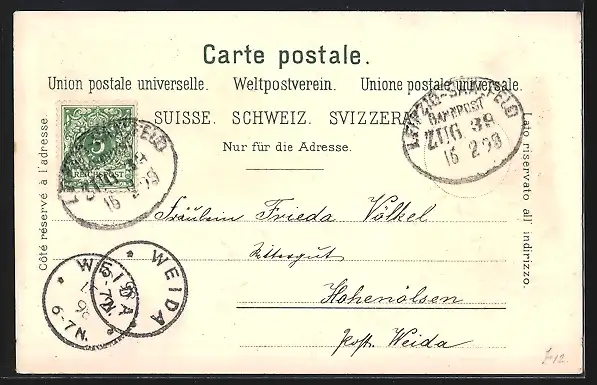 Carte postale.
Union postale universelle. Weltpostverein. Unione postale universale.
SUISSE. SCHWEIZ. SVIZZERA
Nur für die Adresse.
Côté réservé à l'adresse.
Lato riservato all' indirizzo.
5
REICHSPOST
LEIPZIG-SAALFELD
BAHNPOST
ZUG 39
16 2 98
Fräulein Frieda Völkel
Rittergut
Hohenölsen
Post. Weida
WEIDA
6-7N.
WEIDA